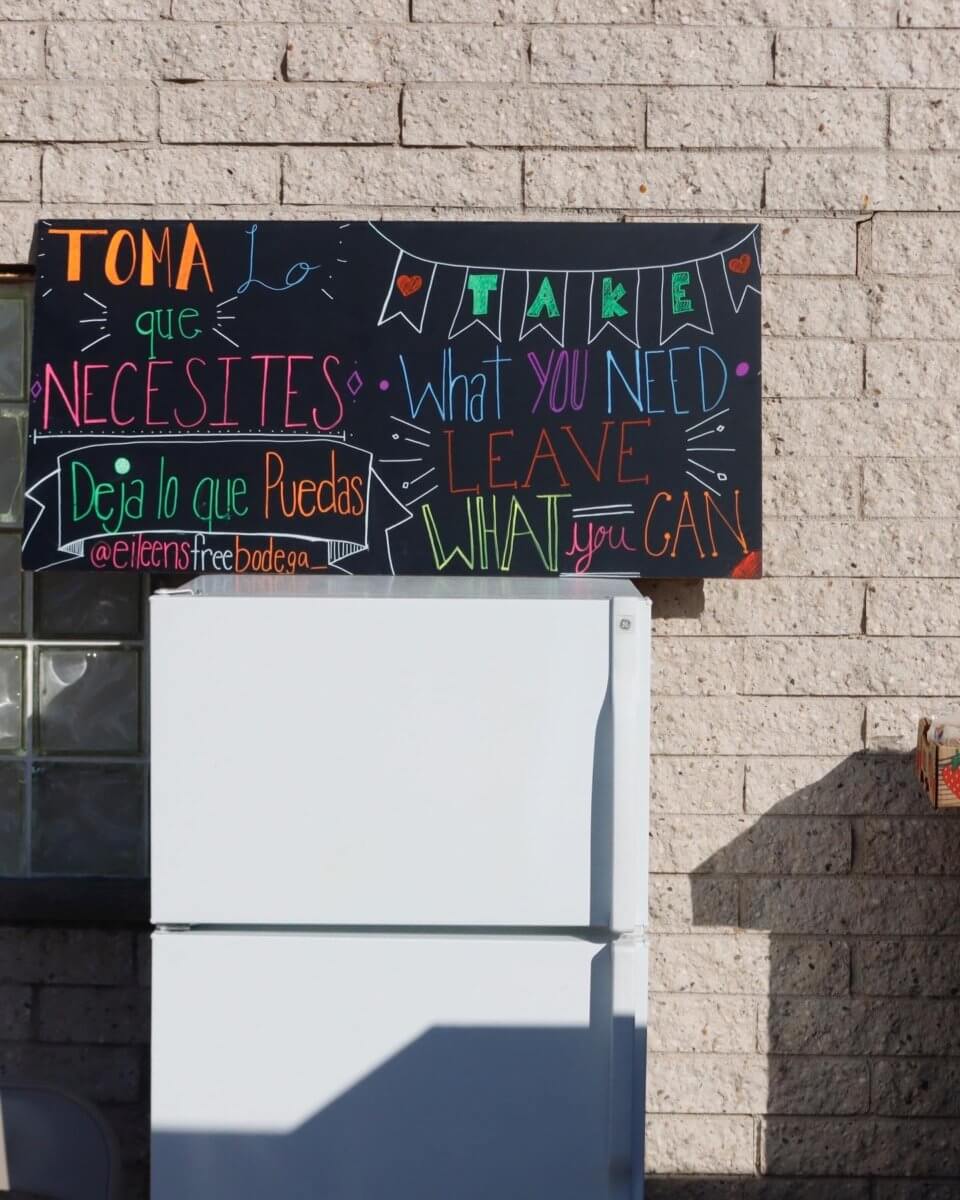 TOMA Lo
que
NECESITES
Deja lo que Puedas
@eileensfreebodega_
TAKE
What YOU NEED
LEAVE
WHAT you CAN
GE